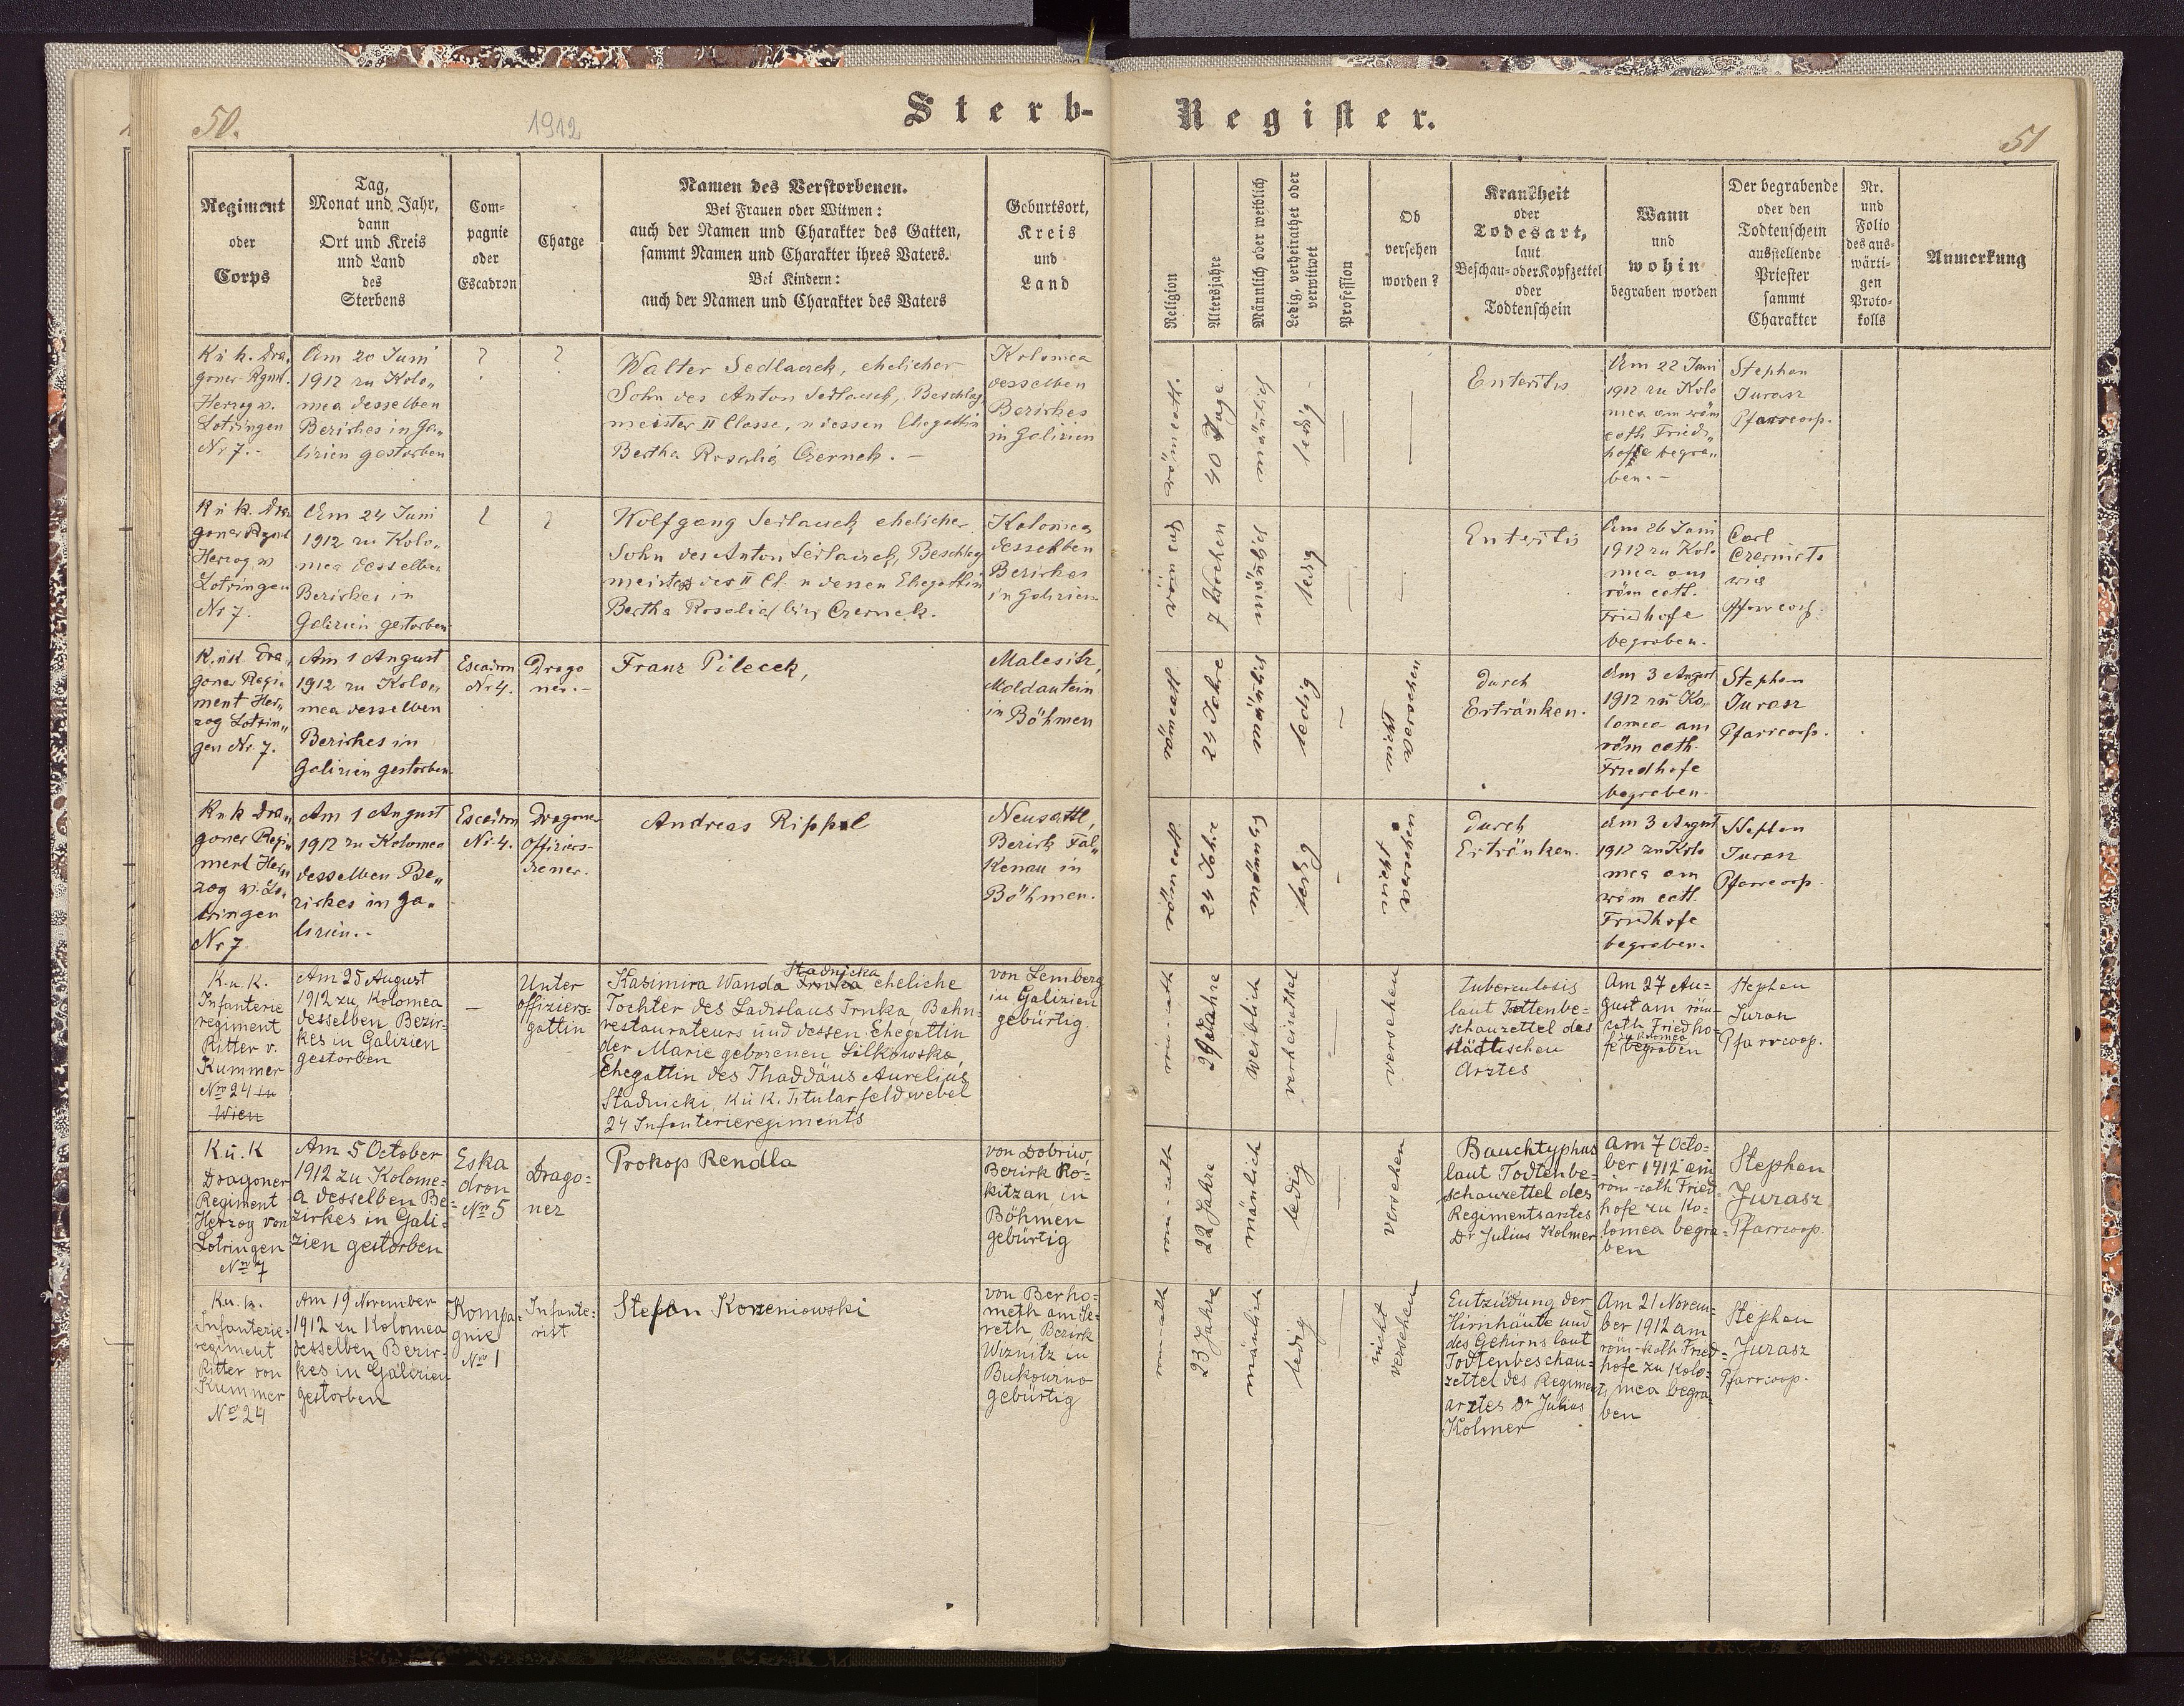 50.
1912
Sterb-
Register.
51
Regiment
oder
Corps
Tag,
Monat und Jahr,
dann
Ort und Kreis
und Land
des
Sterbens
Com-
pagnie
oder
Escadron
Charge
Namen des Verstorbenen.
Bei Frauen oder Witwen:
auch der Namen und Charakter des Gatten,
sammt Namen und Charakter ihres Vaters.
Bei Kindern:
auch der Namen und Charakter des Vaters
Geburtsort,
Kreis
und
Land
Religion
Altersjahre
Männlich oder weiblich
Ledig, verheirathet oder
verwitwet
Profession
Ob
versehen
worden?
Krankheit
oder
Todesart,
laut
Beschau- oder Kopfzettel
oder
Todtenschein
Wann
und
wohin
begraben worden
Der begrabende
oder den
Todtenschein
ausstellende
Priester
sammt
Charakter
Nr.
und
Folio
des aus-
wärti-
gen
Proto-
kolls
Anmerkung
K u k. Dra„
goner Rgmt.
Herzog v.
Lotringen
Nr 7. -
Am 20 Juni
1912 zu Kolo„
mea desselben
Bezirkes in Ga„
lizien gestorben
?
?
Walter Sedlacek, ehelicher
Sohn des Anton Sedlacek, Beschlag
meister II Classe, u dessen Ehegattin
Bertha Rosalia Czernek. -
Kolomea
desselben
Bezirkes
in Galizien
röm cath.
40 Tage
männlich
ledig
—
—
Enteritis
Am 22 Juni
1912 zu Kolo
mea am röm
cath Fried„
hofe begra„
ben. -
Stephan
Jurasz
Pfarrcoop.
K u k. Dra
goner Rgmt
Herzog v
Lotringen
Nr 7.
Am 24 Juni
1912 zu Kolo„
mea desselben
Bezirkes in
Galizien gestorben
?
?
Wolfgang Sedlacek ehelicher
Sohn des Anton Sedlacek, Beschlag
meisters des II Cl. u dessen Ehegattin
Bertha Rosalia Czernek.
Kolomea
desselben
Bezirkes
in Galizien
röm cath
7 Wochen
männlich
ledig
—
—
Enteritis
Am 26 Juni
1912 zu Kolo
mea am
röm cath.
Friedhofe
begraben.
Carl
Pfarrcoop.
K. u k. Dra„
goner Regi„
ment Her„
zog Lotrin„
gen Nr. 7.
Am 1 August
1912 zu Kolo„
mea desselben
Bezirkes in
Galizien gestorben.
Escadron
Nr 4.
Drago
ner. -
Franz Pilecek,
Malesitz,
Moldautein
in Böhmen
röm cath
24 Jahre
männlich
ledig
—
nicht
versehen
durch
Ertränken.
Am 3 August
1912 zu Ko„
lomea am
röm cath.
Friedhofe
begraben.
Stephan
Jurasz
Pfarrcoop.
K u k Dra„
goner Regi„
ment Her„
zog v. Lo„
tringen
Nr 7
Am 1 August
1912 zu Kolomea
desselben Be„
zirkes in Ga„
lizien. -
Escadron
Nr 4.
Dragoner
Offiziers-
diener.
Andreas Rippel
Neusattl,
Bezirk Fal„
kenau in
Böhmen.
röm cath
24 Jahre
männlich
ledig
—
nicht
versehen
durch
Ertränken.
Am 3 August
1912 zu Kolo
mea am
röm cath.
Friedhofe
begraben.
Stephan
Jurasz
Pfarrcoop.
K. u. K.
Infanterie
regiment
Ritter v.
Kummer
Nro 24 in
Wien
Am 25 August
1912 zu Kolomea
desselben Bezir-
kes in Galizien
gestorben
—
Unter
offiziers-
gattin
Stadnicka
Kasimira Wanda Trnka eheliche
Tochter des Ladislaus Trnka, Bahn-
restaurateurs und dessen Ehegattin
der Marie geborenen Silkowska,
Ehegattin des Thaddäus Aurelius
Stadnicki, K u K. Titularfeldwebel
24 Infanterieregiments
von Lemberg
in Galizien
gebürtig
röm-cath
Jahre
weiblich
verheirathet
—
versehen
Tuberculosis
laut Todtenbe-
schauzettel des
städtischen
Arztes
Am 27 Au-
gust am röm-
cath Friedho-
zu Kolomea
fe begraben
Stephan
Jurasz
Pfarrcoop.
K u. K
Dragoner
Regiment
Herzog von
Lotringen
Nro 7
Am 5 October
1912 zu Kolome-
a desselben Be-
zirkes in Gali-
zien gestorben
Eska
dron
Nro 5
Drago-
ner
Prokop Rendla
von Dobřiw,
Bezirk Ro-
kitzan in
Böhmen
gebürtig
röm-cath
22 Jahre
mänlich
ledig
—
versehen
Bauchtyphus
laut Todtenbe-
schauzettel des
Regimentsarztes
Dr Julius Kolmer
Am 7 Octo-
ber 1912 am
röm-cath Fried-
hofe zu Ko-
lomea begra-
ben
Stephan
Jurasz
Pfarrcoop.
K u. k.
Infanterie-
regiment
Ritter von
Kummer
Nro 24
Am 19 November
1912 zu Kolomea
desselben Bezir-
kes in Galizien
gestorben
Kompa-
gnie
Nro 1
Infante-
rist
Stefan Korzeniowski
von Berho-
meth am Se-
reth, Bezirk
Wiznitz in
Bukowina
gebürtig
röm-cath
23 Jahre
mänlich
ledig
—
nicht
versehen
Entzüdung der
Hirnhäute und
des Gehirns laut
Todtenbeschau-
zettel des Regiments
arztes Dr Julius
Kolmer
Am 21 Novem-
ber 1912 am
röm-kath Fried-
hofe zu Kolo-
mea begra-
ben
Stephan
Jurasz
Pfarrcoop.